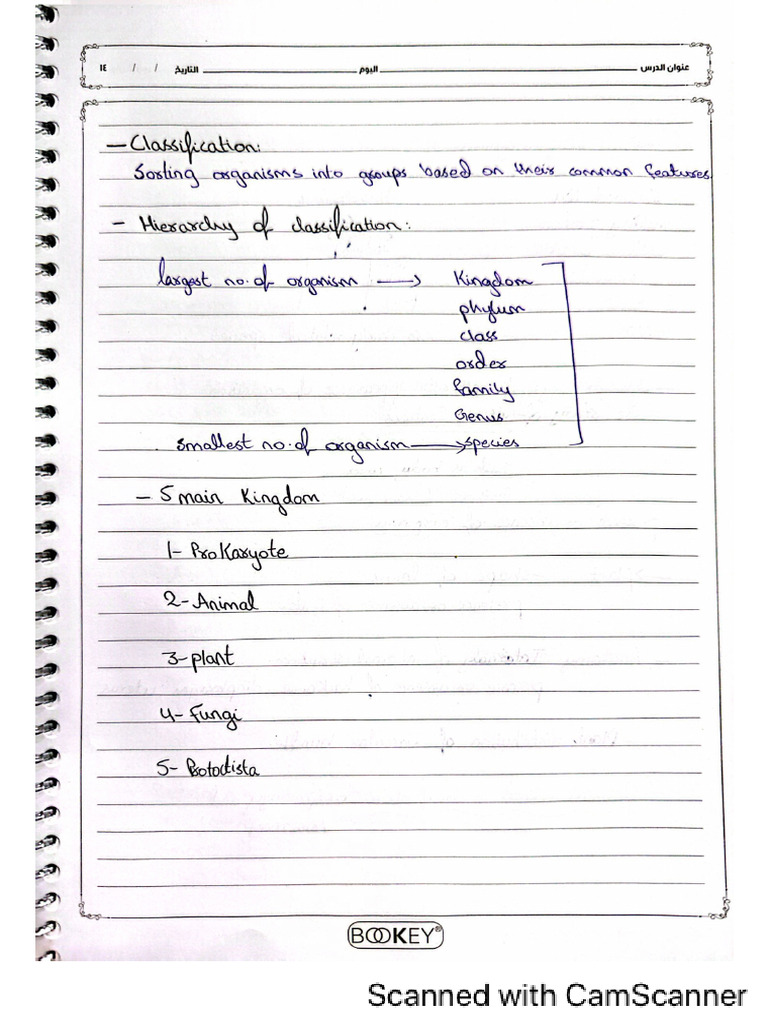 عنوان الدرس اليوم التاريخ / / ١٤
- Classification:
Sorting organisms into groups based on their common features
- Hierarchy of classification:
largest no. of organism → Kingdom
phylum
class
order
family
Genus
smallest no. of organism → species
- 5 main Kingdom
1- ProKaryote
2- Animal
3- plant
4- Fungi
5- Protoctista
BOOKEY®
Scanned with CamScanner